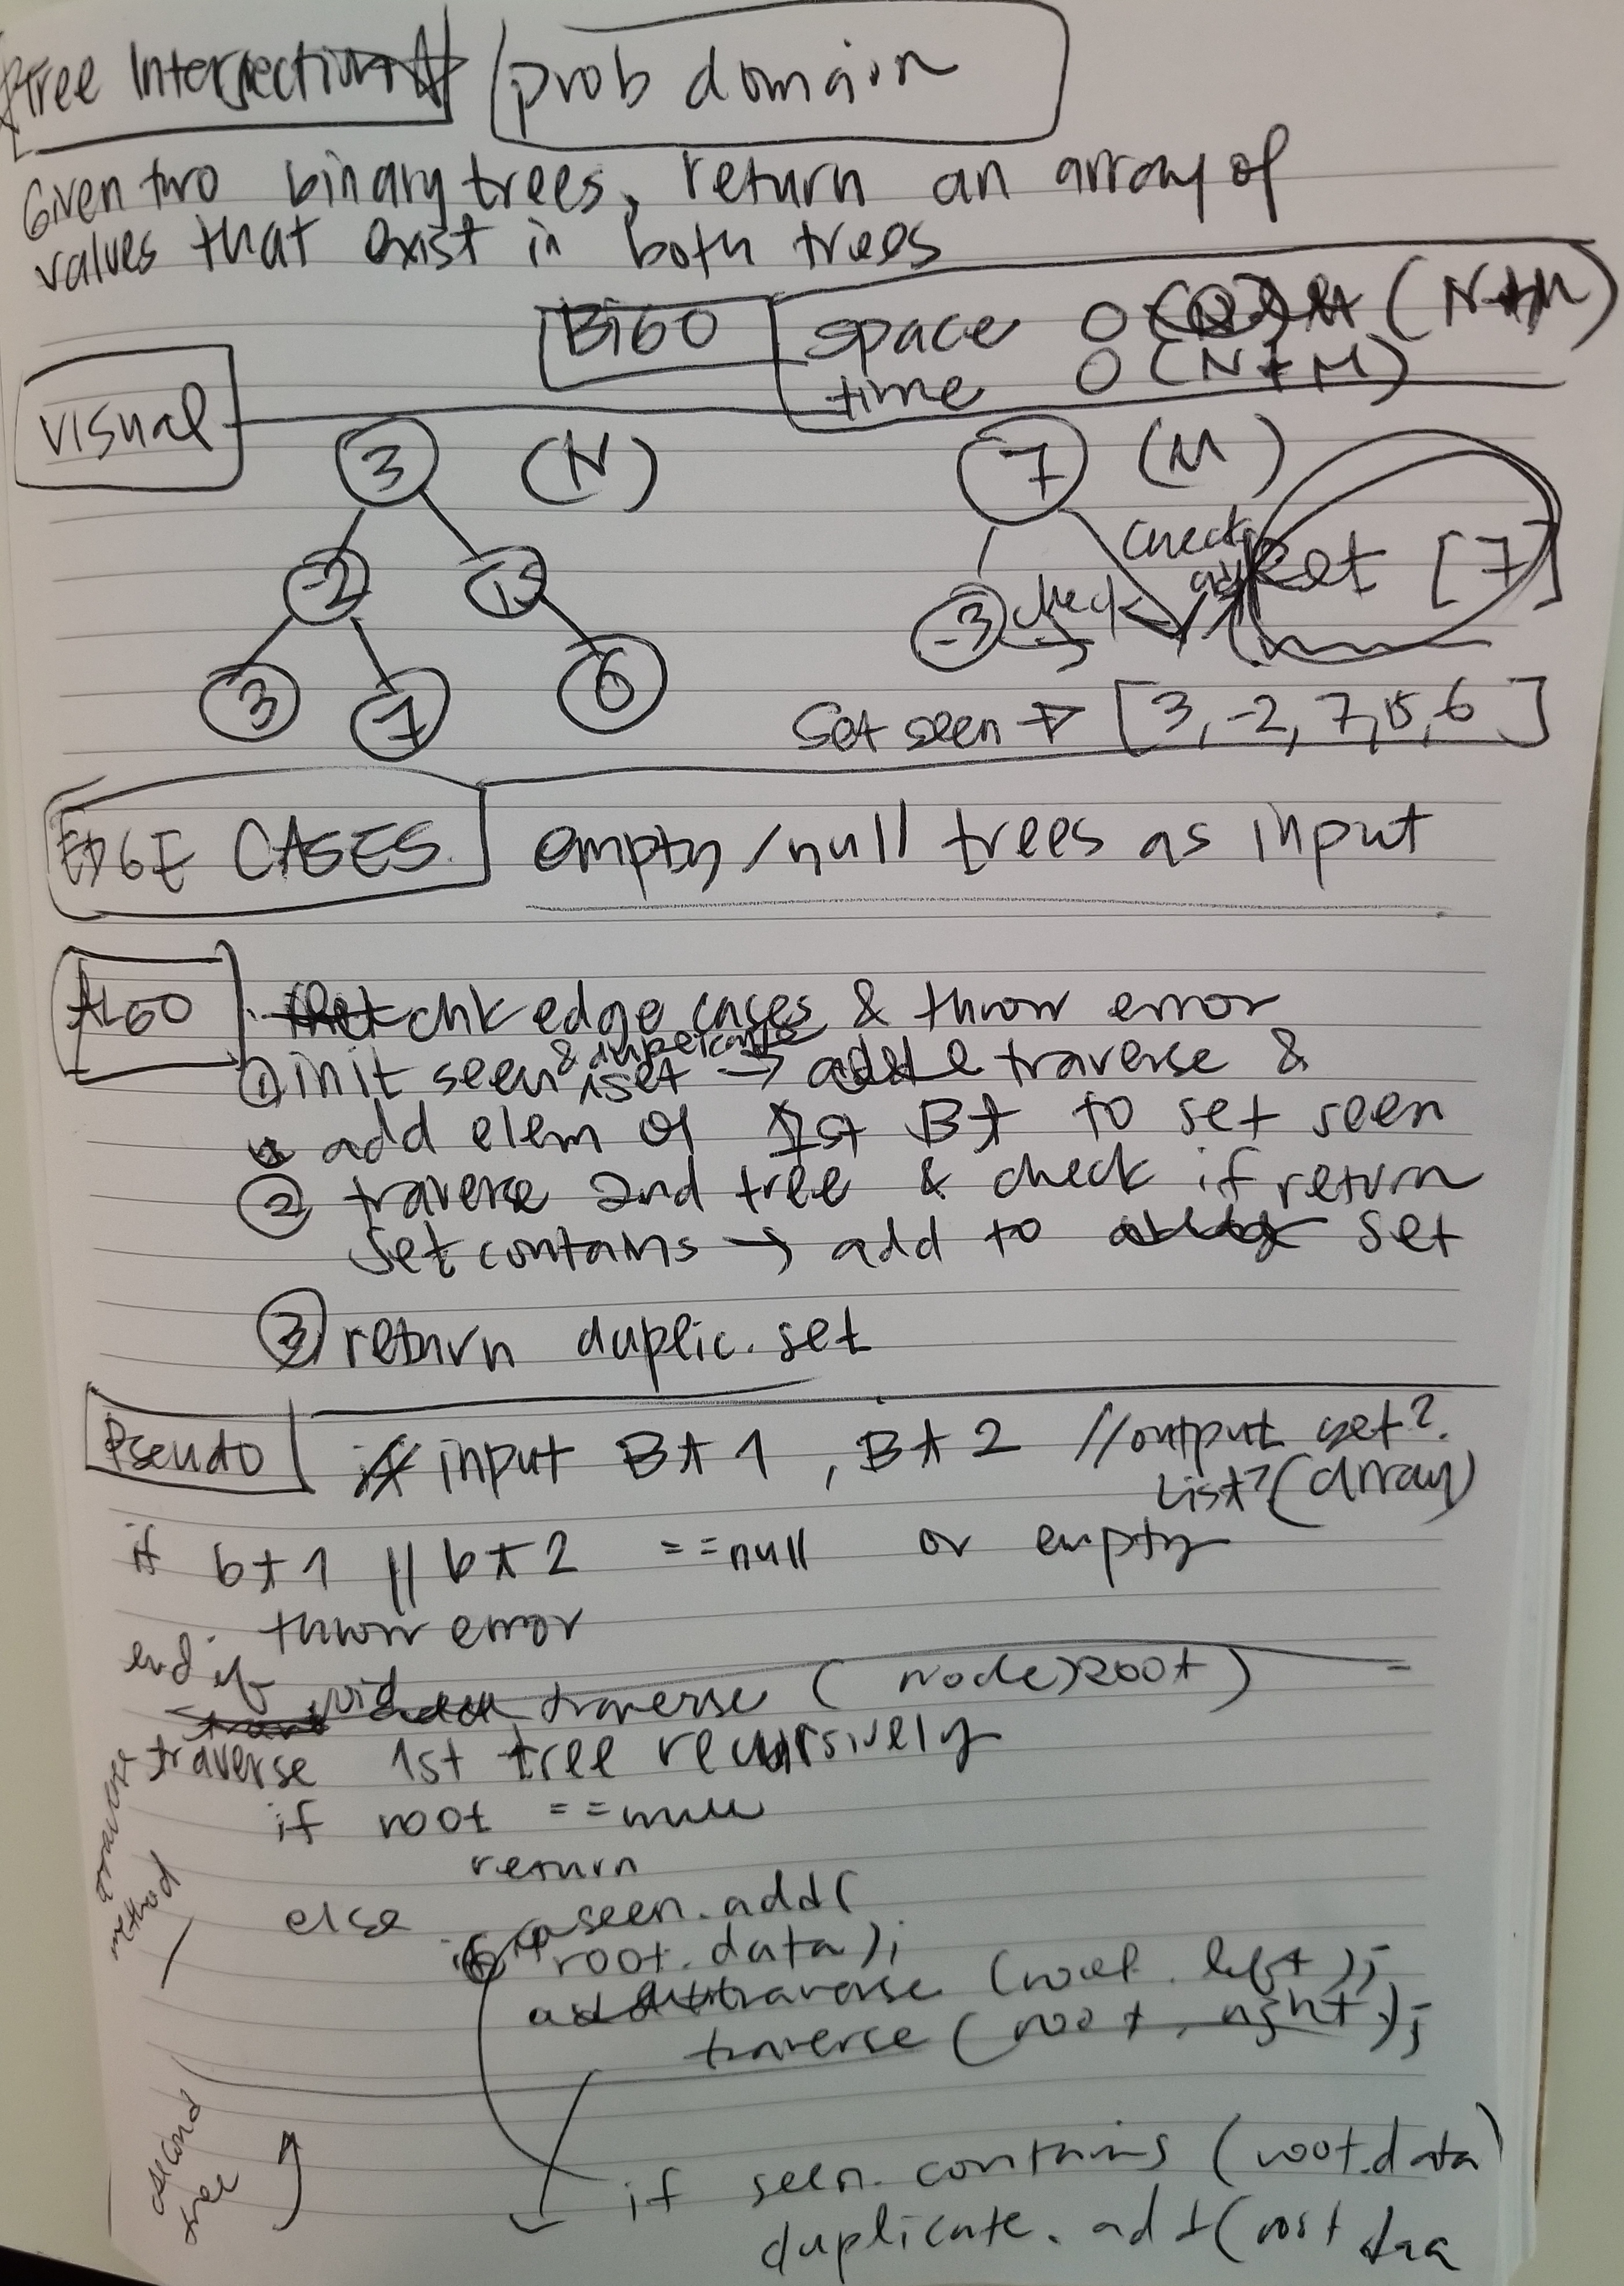 Tree Intersection
prob domain
Given two binary trees, return an array of
values that exist in both trees
BigO
space O (N+M)
time O (N+M)
Visual
3 (N)
-2 15
3 7 6
7 (M)
-3 check
check
ret [7]
Set seen → [3, -2, 7, 15, 6]
EDGE CASES
empty/null trees as input
ALGO
chk edge cases & throw error
① init seen & duplicate set → traverse &
add elem of 1st Bt to set seen
② traverse 2nd tree & check if return
set contains → add to set
③ return duplic. set
Pseudo
input Bt 1, Bt 2 //output set?
List? (array)
if bt1 || bt2 ==null or empty
throw error
end if
void traverse (Node root)
traverse 1st tree recursively
traverse method
if root ==null
return
else seen.add(
root.data);
traverse (root.left);
traverse (root.right);
second tree
if seen.contains (root.data)
duplicate.add(root.data